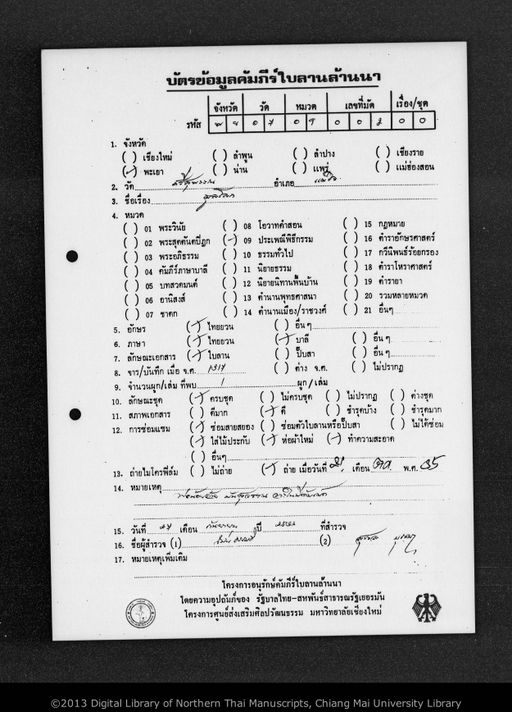 บัตรข้อมูลคัมภีร์ใบลานล้านนา
จังหวัด วัด หมวด เลขที่มัด เรื่อง/ชุด
รหัส พ ย ๐ ๗ ๐ ๙ ๐ ๐ ๐ ๐
1. จังหวัด
( ) เชียงใหม่ ( ) ลำพูน ( ) ลำปาง ( ) เชียงราย
(✓) พะเยา ( ) น่าน ( ) แพร่ ( ) แม่ฮ่องสอน
2. วัด อำเภอ
3. ชื่อเรื่อง
4. หมวด
( ) 01 พระวินัย ( ) 08 โอวาทคำสอน ( ) 15 กฎหมาย
( ) 02 พระสุตตันตปิฎก (✓) 09 ประเพณีพิธีกรรม ( ) 16 ตำราอักษรศาสตร์
( ) 03 พระอภิธรรม ( ) 10 ธรรมทั่วไป ( ) 17 กวีนิพนธ์ร้อยกรอง
( ) 04 คัมภีร์ภาษาบาลี ( ) 11 นิยายธรรม ( ) 18 ตำราโหราศาสตร์
( ) 05 บทสวดมนต์ ( ) 12 นิยายนิทานพื้นบ้าน ( ) 19 ตำรายา
( ) 06 อานิสงส์ ( ) 13 ตำนานพุทธศาสนา ( ) 20 รวมหลายหมวด
( ) 07 ชาดก ( ) 14 ตำนานเมือง/ราชวงศ์ ( ) 21 อื่นๆ
5. อักษร (✓) ไทยยวน ( ) อื่น ๆ
6. ภาษา (✓) ไทยยวน (✓) บาลี ( ) อื่น ๆ
7. ลักษณะเอกสาร (✓) ใบลาน ( ) ปั๊บสา ( ) อื่น ๆ
8. จาร/บันทึก เมื่อ จ.ศ. ( ) ต่าง จ.ศ. ( ) ไม่ปรากฏ
9. จำนวนผูก/เล่ม ที่พบ 1 ผูก / เล่ม
10. ลักษณะชุด (✓) ครบชุด ( ) ไม่ครบชุด ( ) ไม่ปรากฏ ( ) ต่างชุด
11. สภาพเอกสาร ( ) ดีมาก (✓) ดี ( ) ชำรุดบ้าง ( ) ชำรุดมาก
12. การซ่อมแซม (✓) ซ่อมสายสยอง ( ) ซ่อมตัวใบลานหรือปั๊บสา ( ) ไม่ได้ซ่อม
(✓) ใส่ไม้ประกับ (✓) ห่อผ้าใหม่ (✓) ทำความสะอาด
( ) อื่นๆ
13. ถ่ายไมโครฟิล์ม ( ) ไม่ถ่าย (✓) ถ่าย เมื่อวันที่ 21 เดือน ตค พ.ศ. 35
14. หมายเหตุ
15. วันที่ เดือน กันยายน ปี ที่สำรวจ
16. ชื่อผู้สำรวจ (1) (2)
17. หมายเหตุเพิ่มเติม
โครงการอนุรักษ์คัมภีร์ใบลานล้านนา
โดยความอุปถัมภ์ของ รัฐบาลไทย-สหพันธ์สาธารณรัฐเยอรมัน
โครงการศูนย์ส่งเสริมศิลปวัฒนธรรม มหาวิทยาลัยเชียงใหม่
©2013 Digital Library of Northern Thai Manuscripts, Chiang Mai University Library